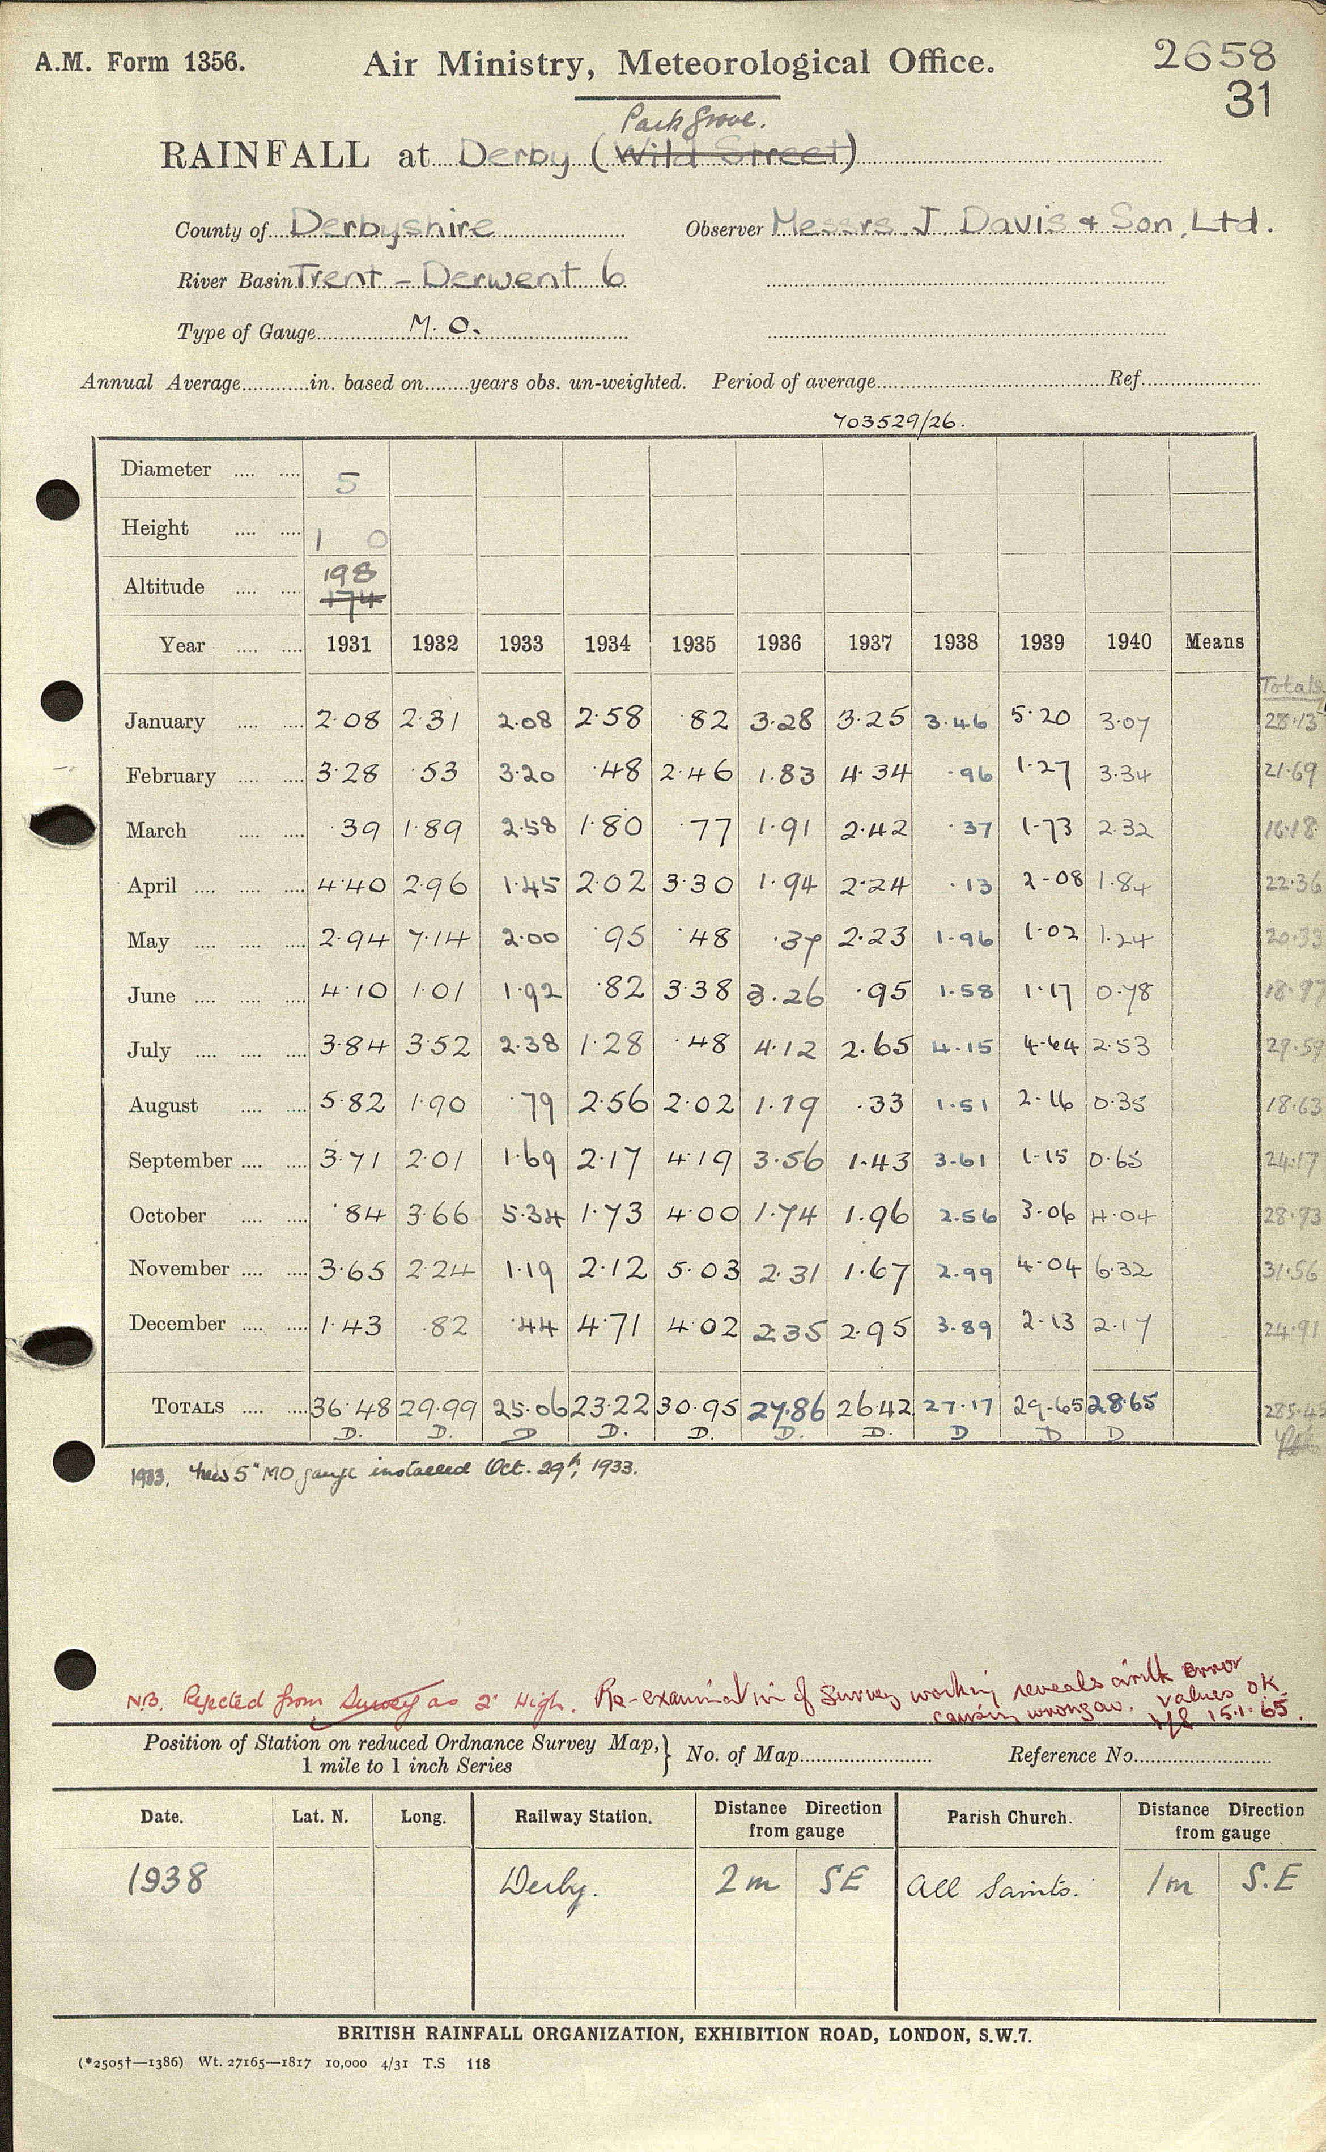 A.M. Form 1356. Air Ministry, Meteorological Office. 2658
31
Park Grove.
RAINFALL at Derby (Wild Street)
County of Derbyshire Observer Messrs J. Davis & Son, Ltd.
River Basin Trent – Derwent 6
Type of Gauge M. O.
Annual Average in. based on years obs. un-weighted. Period of average Ref.
703529/26.
Diameter 5
Height 1 0
Altitude 198
174
Year 1931 1932 1933 1934 1935 1936 1937 1938 1939 1940 Means
Totals
January 2·08 2·31 2·08 2·58 ·82 3·28 3·25 3·46 5·20 3·07 28·13
February 3·28 ·53 3·20 ·48 2·46 1·83 4·34 ·96 1·27 3·34 21·69
March ·39 1·89 2·58 1·80 ·77 1·91 2·42 ·37 1·73 2·32 16·18
April 4·40 2·96 1·45 2·02 3·30 1·94 2·24 ·13 2·08 1·84 22·36
May 2·94 7·14 2·00 ·95 ·48 ·37 2·23 1·96 1·02 1·24 20·33
June 4·10 1·01 1·92 ·82 3·38 3·26 ·95 1·58 1·17 0·78 18·97
July 3·84 3·52 2·38 1·28 ·48 4·12 2·65 4·15 4·64 2·53 29·59
August 5·82 1·90 ·79 2·56 2·02 1·19 ·33 1·51 2·16 0·35 18·63
September 3·71 2·01 1·69 2·17 4·19 3·56 1·43 3·61 1·15 0·65 24·17
October ·84 3·66 5·34 1·73 4·00 1·74 1·96 2·56 3·06 4·04 28·93
November 3·65 2·24 1·19 2·12 5·03 2·31 1·67 2·99 4·04 6·32 31·56
December 1·43 ·82 ·44 4·71 4·02 2·35 2·95 3·89 2·13 2·17 24·91
TOTALS 36·48 29·99 25·06 23·22 30·95 27·86 26·42 27·17 29·65 28·65 285·45
D. D. D D. D. D. D. D D D
1933. New 5" MO gauge installed Oct. 29th, 1933.
N.B. Rejected from Survey as 2" High. Re-examination of Survey working reveals arith error
causing wrong av. Values OK
15.1.65.
Position of Station on reduced Ordnance Survey Map, } No. of Map Reference No.
1 mile to 1 inch Series
Date. Lat. N. Long. Railway Station. Distance Direction from gauge Parish Church. Distance Direction from gauge
1938 Derby. 2 m SE All Saints. 1 m S.E
BRITISH RAINFALL ORGANIZATION, EXHIBITION ROAD, LONDON, S.W.7.
(*2505†—1386) Wt. 27165—1817 10,000 4/31 T.S 118